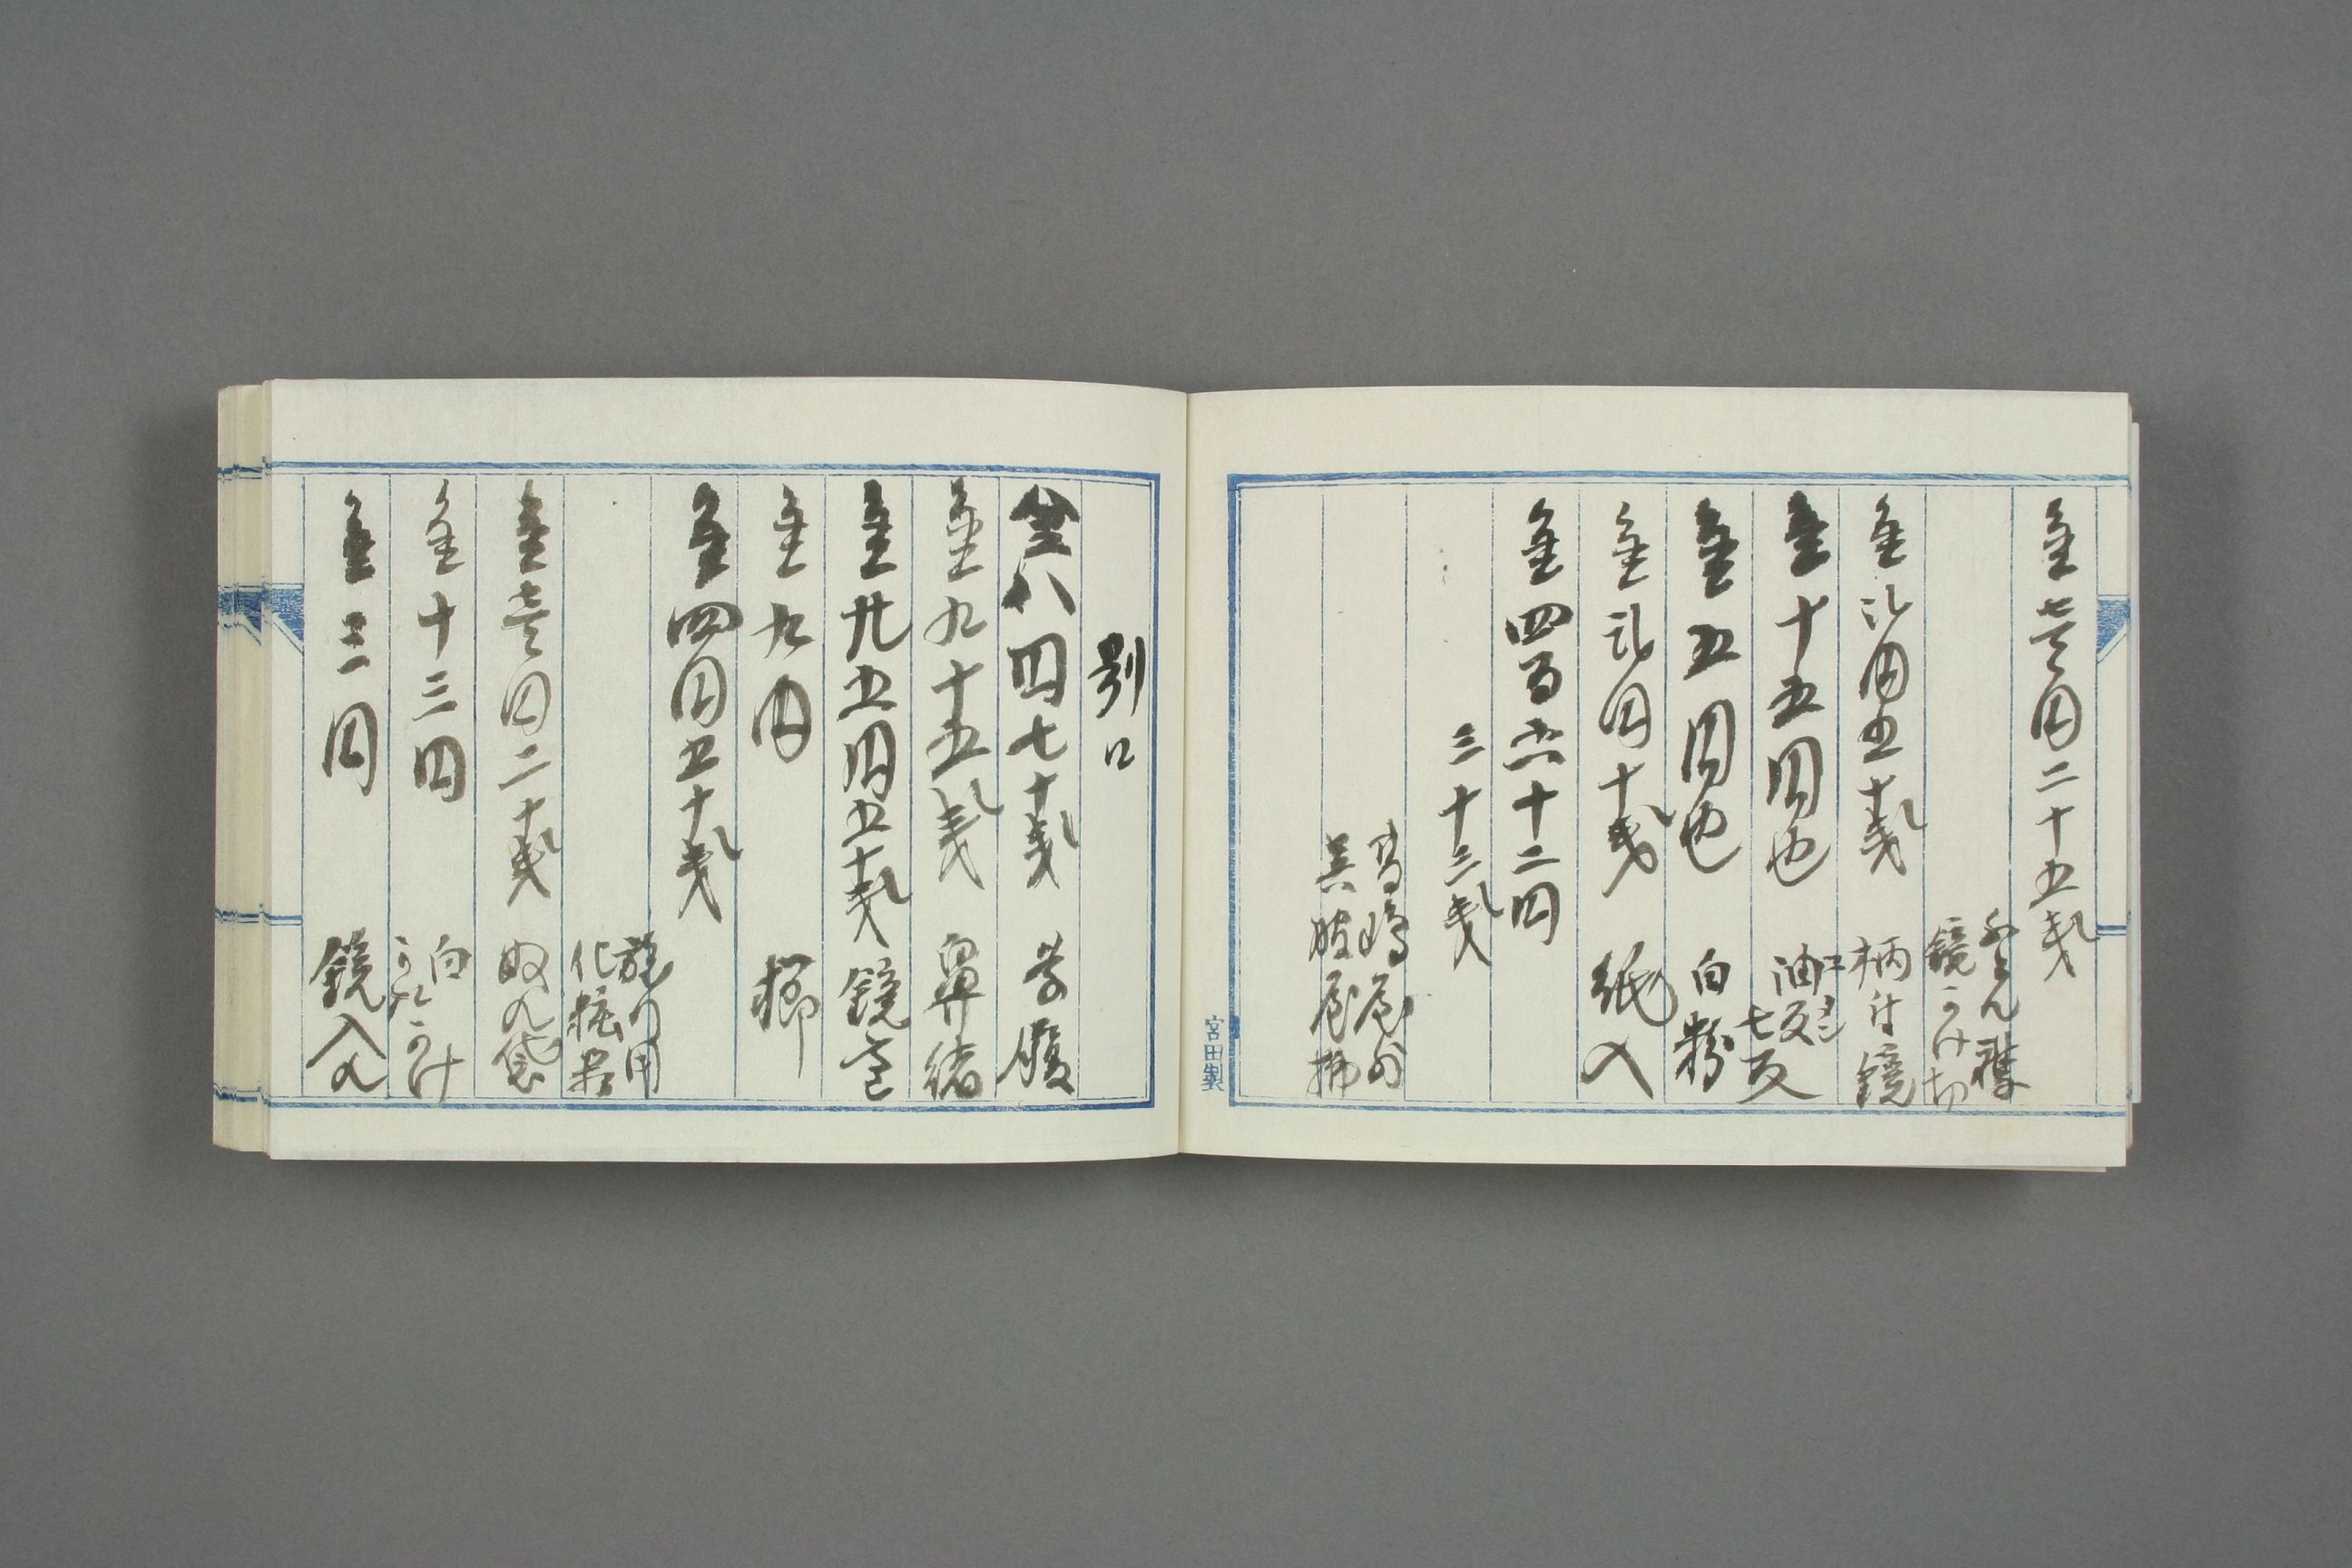 金壱円二十五銭
鏡かけ切
金弐円五十銭 柄付鏡
金十五円也 油
七反
金五円也 白粉
金弐円十銭 紙入
金四百六十二円
三十三銭
高嶋屋
呉服
宮田製
別口
金八円七十銭
金九十五銭 鼻緒
金廿五円五十銭 鏡台
金九円 櫛
金四円五十銭 旅行用
化粧器
金壱円二十銭 ぬの袋
金十三円 白
かけ
金三円 鏡入